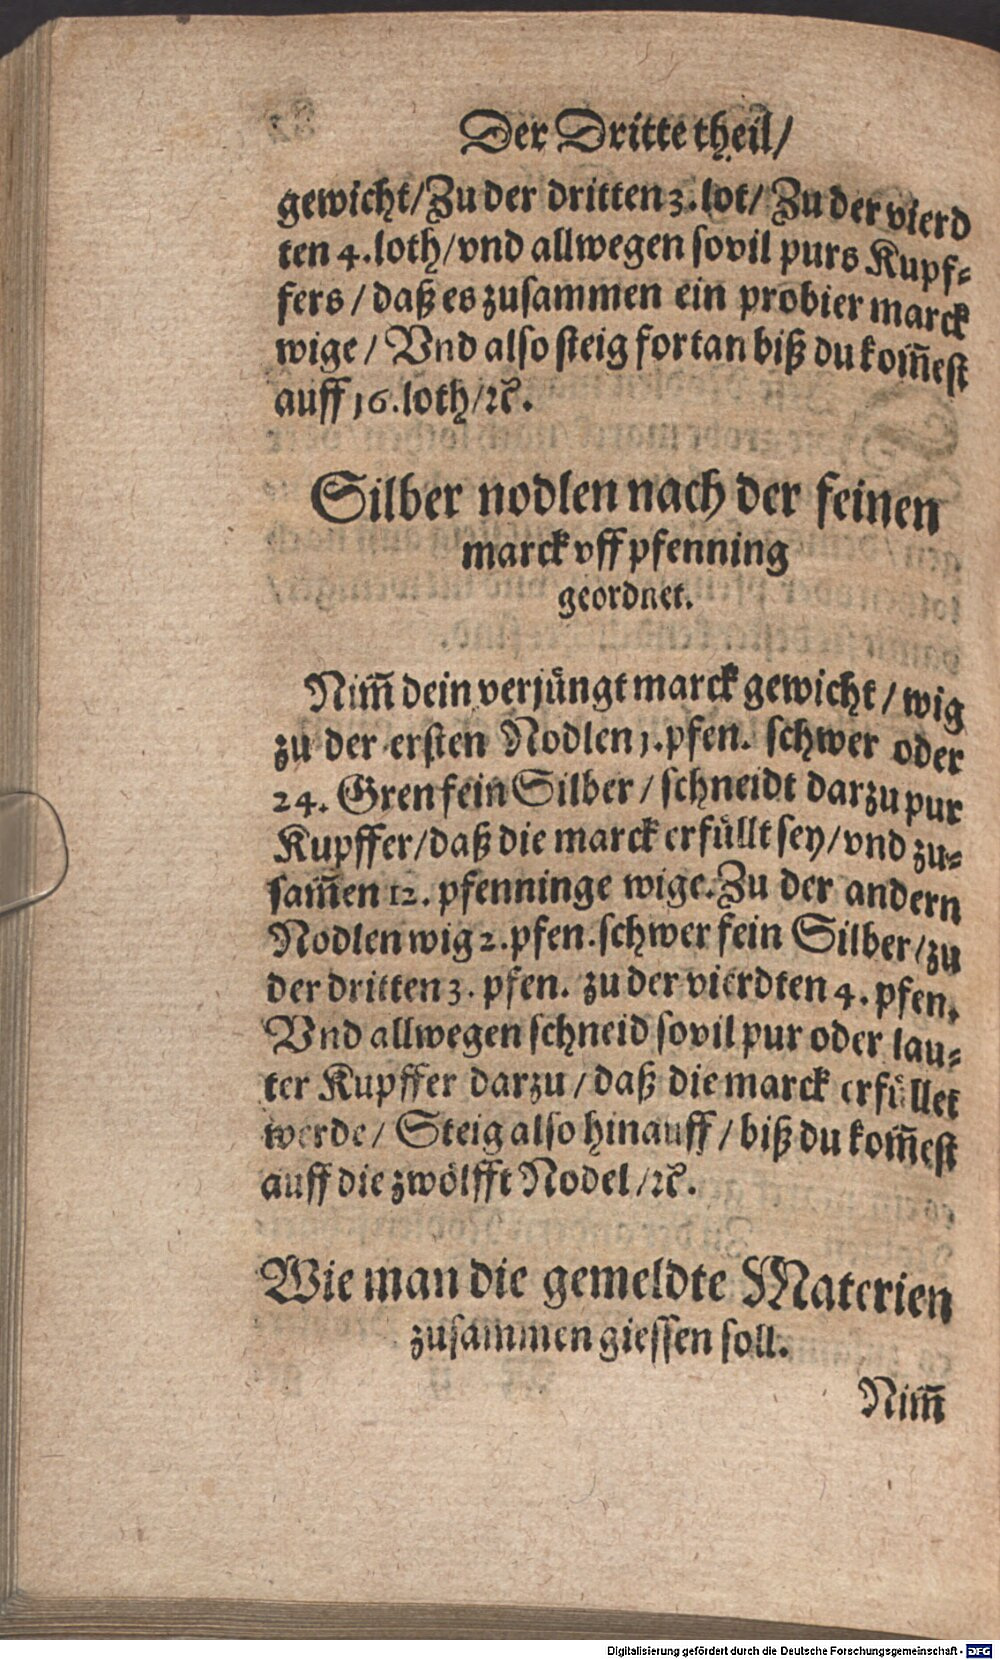 Der Dritte theil/
gewicht/Zu der dritten 3.lot/ Zu der vierd
ten 4.loth/vnd allwegen sovil purs Kupf⸗
fers / daß es zusammen ein probier marck
wige / Vnd also steig fortan biß du kom̃est
auff 16.loth/ꝛc.
Silber nodlen nach der feinen
marck vff pfenning
geordnet.
Nim̃ dein verjüngt marck gewicht / wig
zu der ersten Nodlen 1.pfen. schwer oder
24. Gren fein Silber / schneidt darzu pur
Kupffer/daß die marck erfüllt sey/vnd zu⸗
sam̃en 12. pfenninge wige. Zu der andern
Nodlen wig 2.pfen.schwer fein Silber/zu
der dritten 3. pfen. zu der vierdten 4. pfen.
Vnd allwegen schneid sovil pur oder lau⸗
ter Kupffer darzu / daß die marck erfüllet
werde/ Steig also hinauff / biß du kom̃est
auff die zwölfft Nodel /ꝛc.
Wie man die gemeldte Materien
zusammen giessen soll.
Nim̃
Digitalisierung gefördert durch die Deutsche Forschungsgemeinschaft - DFG